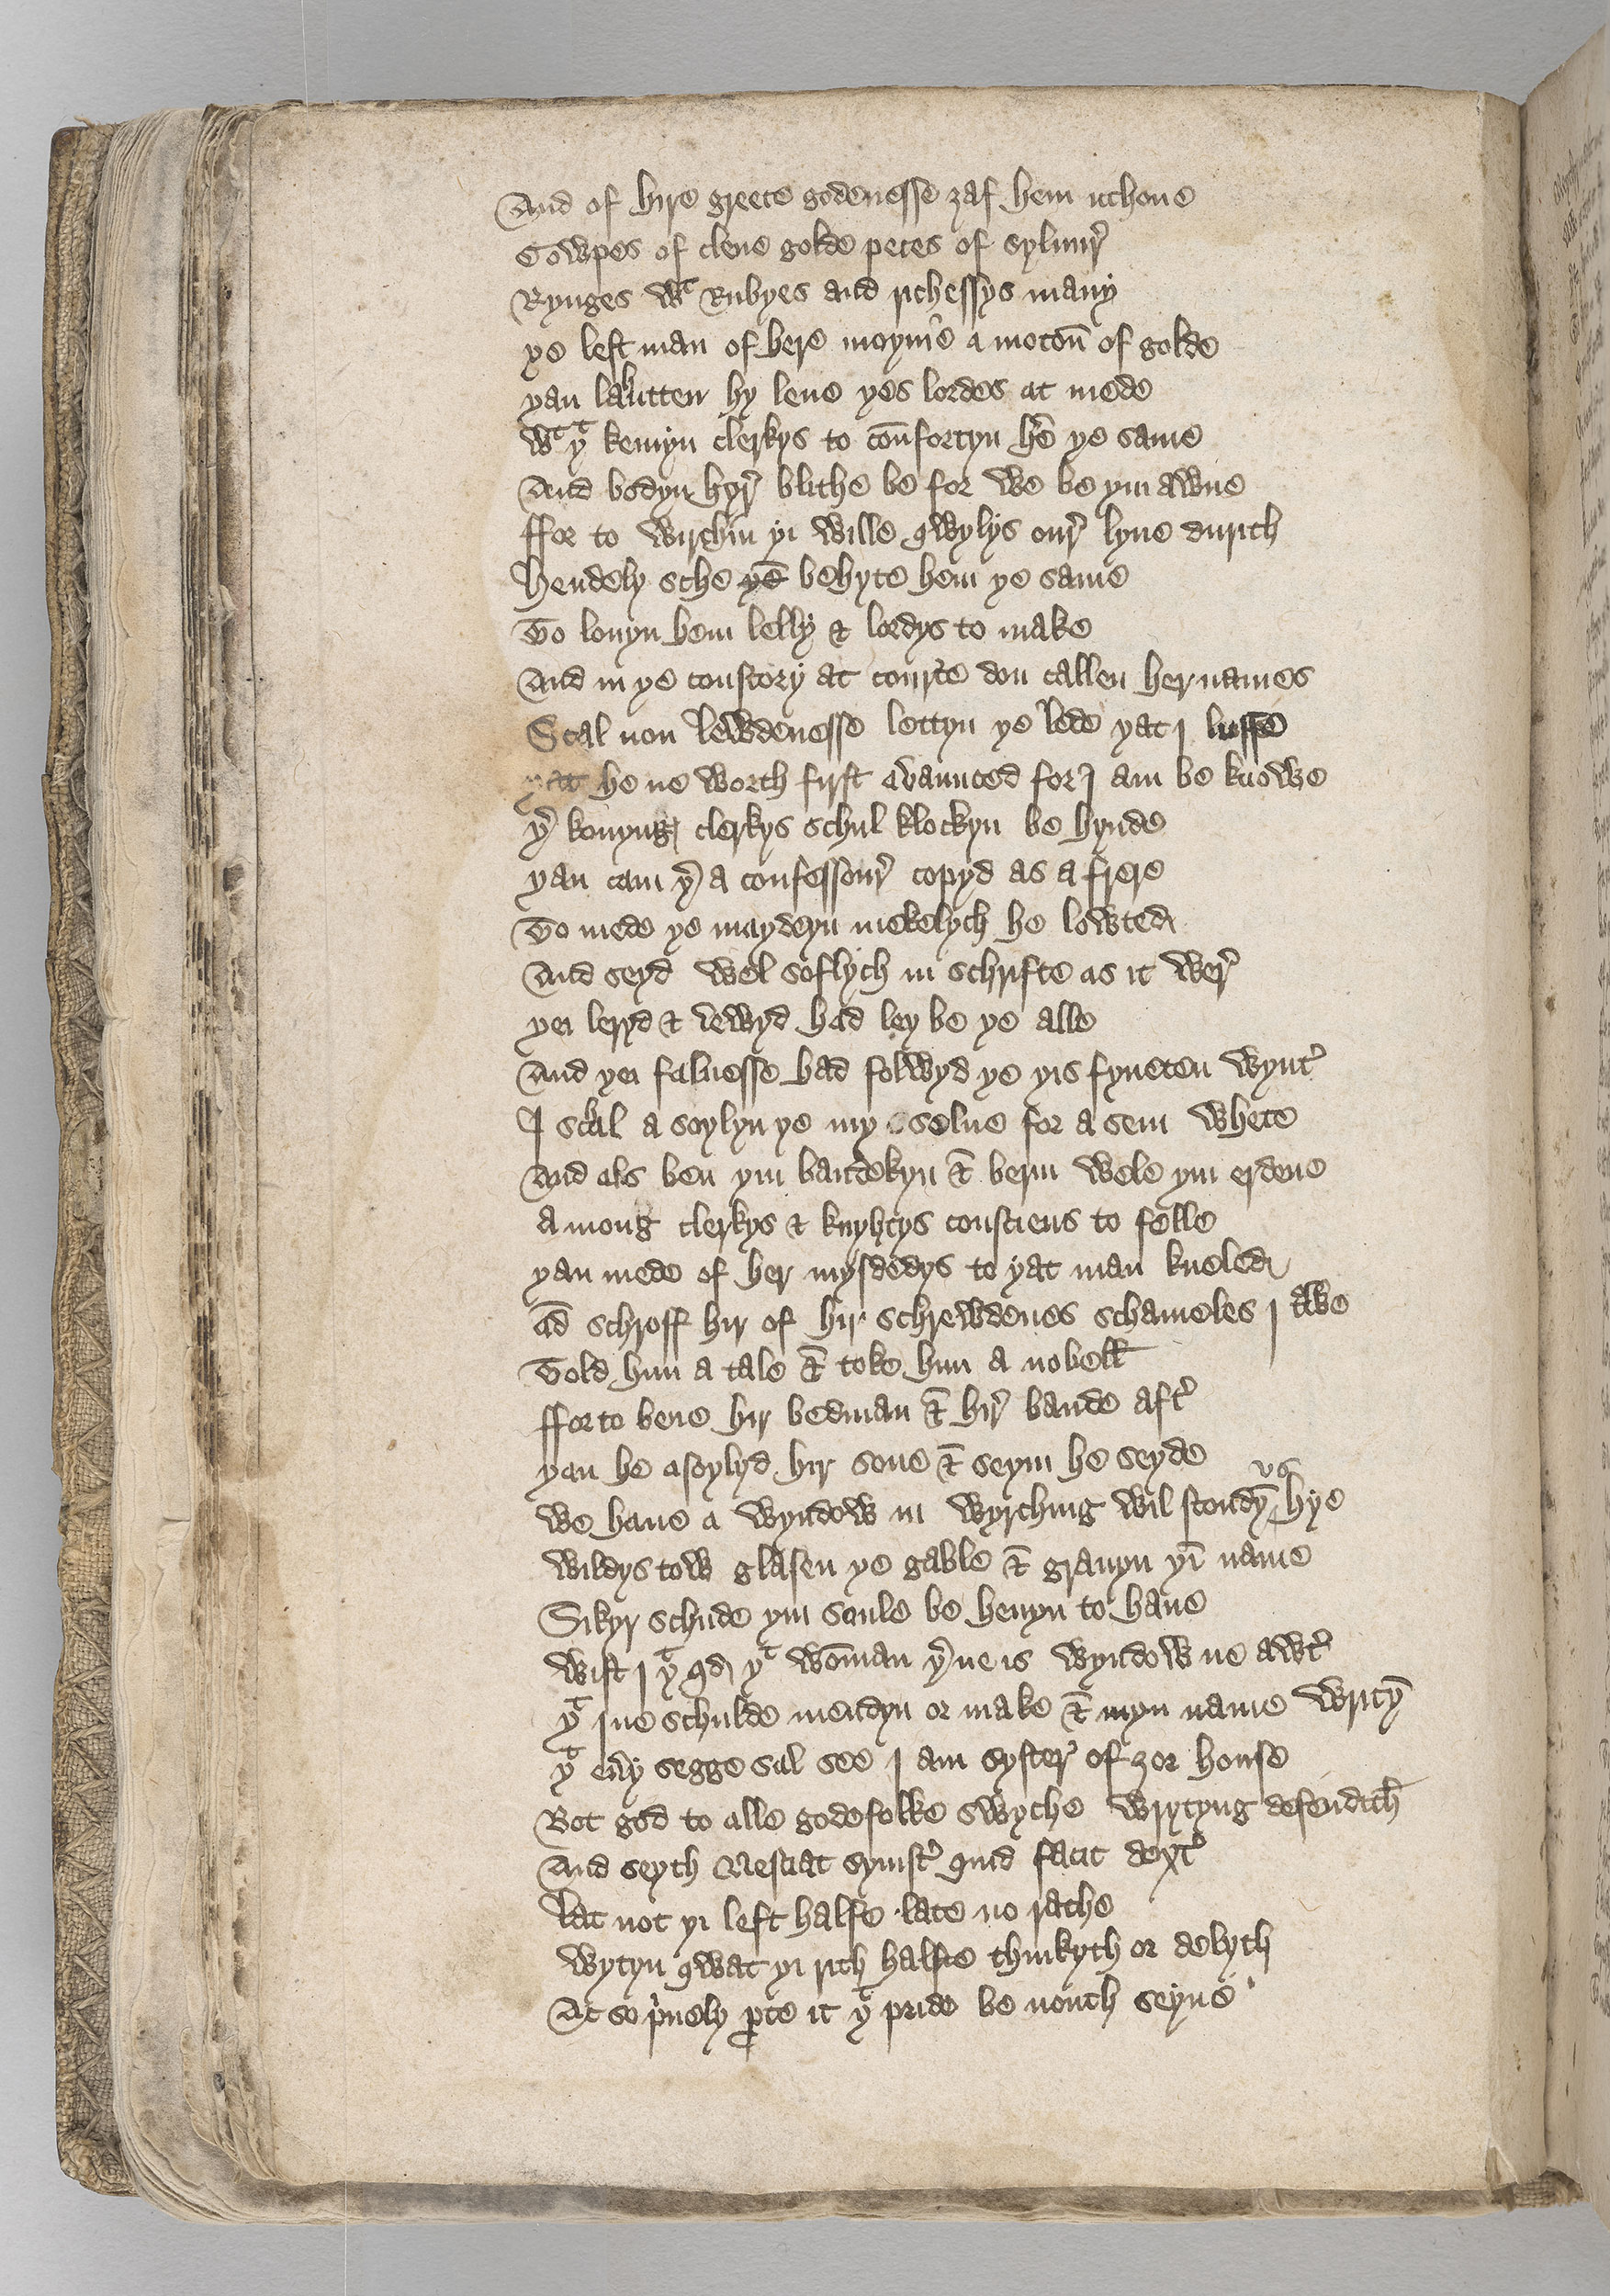 And of hire greete godenesse zaf hem ichone
Cowpes of clene golde peces of syluur̉
Rynges wt Rubyes and richessys many
ye lest man of here moyme a moton̄ of golde
yan lahutten hy leue yes lordes at mede
wt yt kemyn clerkys to con̄fortyn hē ye same
And bodyn hyr̉ blithe be for we be yin awne
ffor to wirchin yi wille qwylys our̉ lyue durith
Hendely sche yē behyte hem ye same
To louyn hem lelly & lordys to make
And in ye constory at courte don callen her names
Scal non lewdenesse lettyn ye lede yat i luffe
yat he ne worth first avaunced for I am be knowe
yr̉ konyng clerkys schul klockyn be hynde
yan cam yr̉ a confessour̉ copyd as a frere
To mede ye maydeyn mekelych he lowted
And seyd wel softlych in schrifte as it wer̉
yei leryd & lewyd had ley be ye alle
And yei falnesse had folwyd ye yis fyueten wynt̉
I schal a soylyn ye my selue for a sem whete
And als ben yin baudekyn & berin wele yin erdene
Among clerkys & knyhtys consciens to felle
yan mede of her mysdedys to yat man kneled
ad̄ schroff hir of hir schrewdenes schameles i trwe
Told him a tale & toke him a nobell
ffor to bene hir bedman & hir̉ baude aft̉
yan he asoylyd hir sone & seyin he seyde
we haue a wyndow in wyrching wil stondȳ vs hye
wildystow glasen ye gable & grauyn yī name
Sikyr schude yin soule be heuyn to haue
wist i yt qd yt wom̄an yr̉ ne is wyndow ne awt̉
yt i ne schulde mendyn or make & myn name writȳ
yt eủy segge sal see i am syster̉ of zor house
Bot god to alle godefolke swyche wrytyng defendith
And seyth Nesciat synist̉ quid facit dext̉
lat not yi left halfe late no rathe
wytyn qwat yi rith halfte thinkyth or delyth
At so p̉uely p̱te it yt pride be nouth seyne